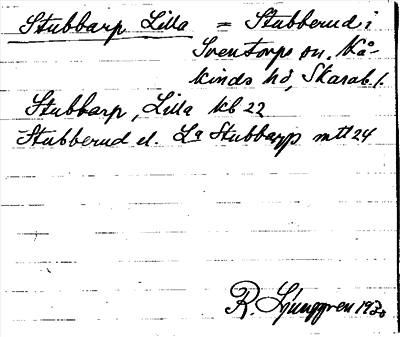 Stubbarp Lilla = Stubberud i
Sventorps sn. Kå-
kinds hd, Skarab. l.
Stubbarp, Lilla kb 22
Stubberud el. La Stubbarp mtl 24
R. Ljunggren 1930